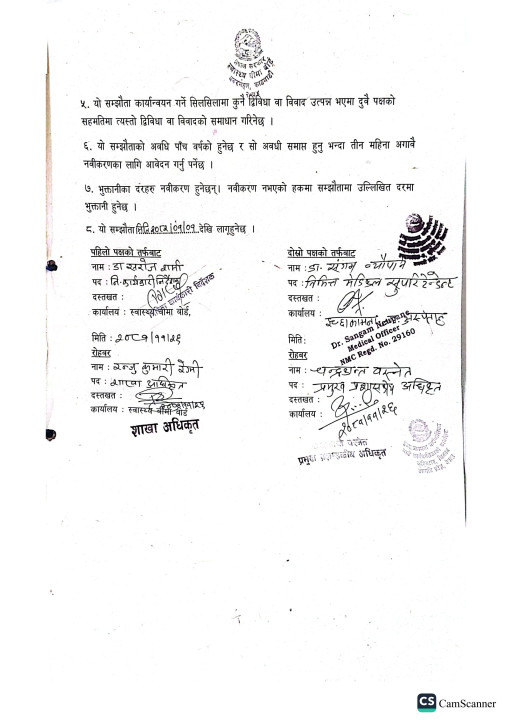 नेपाल सरकार
स्वास्थ्य बीमा बोर्ड
५. यो सम्झौता कार्यान्वयन गर्ने सिलसिलामा कुनै द्विविधा वा विवाद उत्पन्न भएमा दुवै पक्षको
सहमतिमा त्यस्तो द्विविधा वा विवादको समाधान गरिनेछ ।
६. यो सम्झौताको अवधि पाँच वर्षको हुनेछ र सो अवधी समाप्त हुनु भन्दा तीन महिना अगावै
नवीकरणका लागि आवेदन गर्नु पर्नेछ ।
७. भुक्तानीका दरहरु नवीकरण हुनेछन्। नवीकरण नभएको हकमा सम्झौतामा उल्लिखित दरमा
भुक्तानी हुनेछ ।
८. यो सम्झौता मिति २०८२/०१/०१ देखि लागूहुनेछ ।
पहिलो पक्षको तर्फबाट
नाम : डा सरोज शर्मा
पद : नि.कार्यकारी निर्देशक
कार्यकारी निर्देशक
दस्तखत :
कार्यालय : स्वास्थ्य बीमा बोर्ड,
मिति : २०८१/११/२६
रोहबर
नाम : रन्जु कुमारी
पद : शाखा अधिकृत
दस्तखत :
कार्यालय : स्वास्थ्य बीमा बोर्ड
शाखा अधिकृत
दोस्रो पक्षको तर्फबाट
नाम : डा. संगम न्यौपाने
पद : निमित्त मेडिकल सुपरिटेन्डेन्ट
दस्तखत :
कार्यालय :
Dr. Sangam Neupane
Medical Officer
NMC Regd. No. 29160
मिति:
रोहबर
नाम : चन्द्रकान्त वस्नेत
पद : प्रमुख प्रशासकीय अधिकृत
दस्तखत :
कार्यालय :
२०८१/११/२६
प्रमुख प्रशासकीय अधिकृत
CS CamScanner